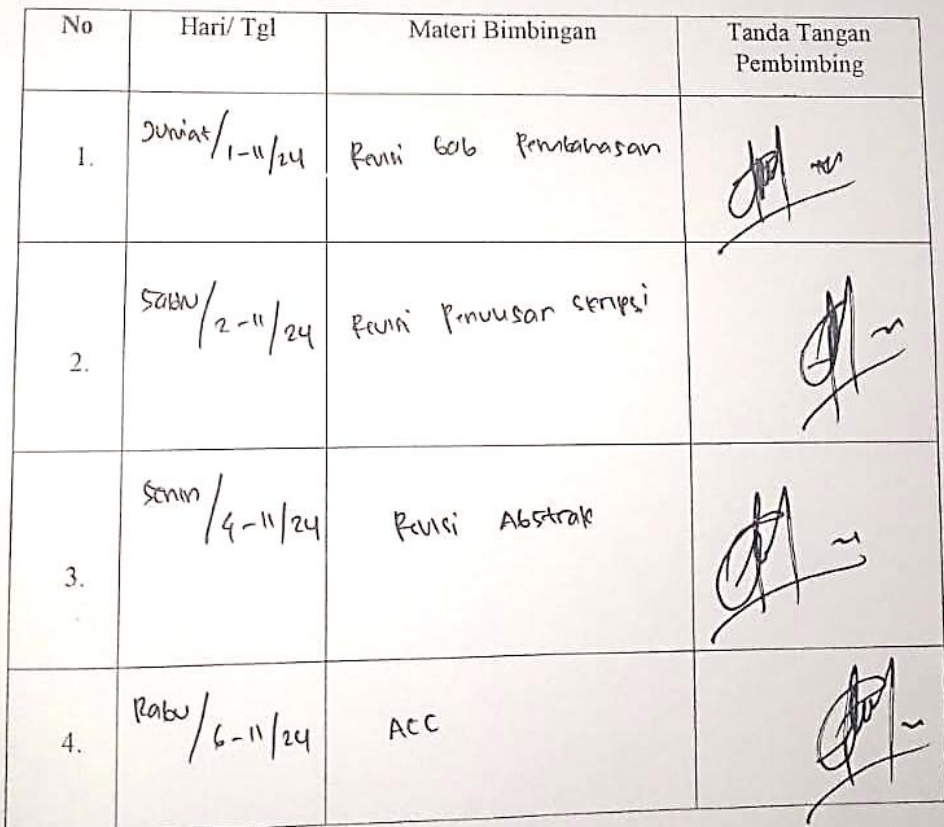 No Hari/ Tgl Materi Bimbingan Tanda Tangan
Pembimbing
1. Jum'at/1-11/24 Revisi bab Pembahasan
2. Sabtu/2-11/24 Revisi Penulisan skripsi
3. Senin/4-11/24 Revisi Abstrak
4. Rabu/6-11/24 ACC